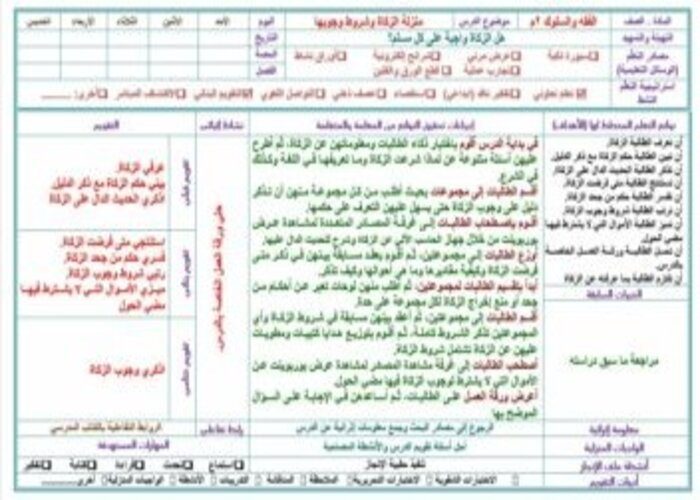 المادة . الصف
الفقه والسلوك ٢م
موضوع الدرس
منزلة الزكاة وشروط وجوبها
اليوم
الأحد
الاثنين
الثلاثاء
الأربعاء
الخميس
التهيئة والتمهيد
هل الزكاة واجبة على كل مسلم؟
التاريخ
مصادر التعلم
(الوسائل التعليمية)
سبورة ذكية
عرض مرئي
شرائح إلكترونية
أوراق نشاط
تجارب عملية
قطع الورق والفلين
الحصة
الفصل
استراتيجية التعلم
النشط
تعلم تعاوني
تفكير ناقد (إبداعي)
استقصاء
عصف ذهني
التواصل اللغوي
التقويم البنائي
الاكتشاف المباشر
أخرى: ........
نواتج التعلم المخطط لها (الأهداف)
أن تعرف الطالبة الزكاة.
أن تبين الطالبة حكم الزكاة مع ذكر الدليل.
أن تذكر الطالبة الحديث الدال على الزكاة
أن تستنتج الطالبة متى فرضت الزكاة.
أن تفسر الطالبة حكم من جحد الزكاة.
أن ترتب الطالبة شروط وجوب الزكاة.
أن تميز الطالبة الأموال التي لا يشترط فيها
مضي الحول
أن تحل الطالبة ورقة العمل الخاصة
بالدرس.
أن تلتزم الطالبة بما عرفته عن الزكاة
الخبرات السابقة
مراجعة ما سبق دراسته
في بداية الدرس أقوم باختبار ذكاء الطالبات ومعلوماتهن عن الزكاة، ثم أطرح
عليهن أسئلة متنوعة عن لماذا شرعت الزكاة وما تعريفها في اللغة وكذلك
في الشرع.
أقسم الطالبات إلى مجموعات بحيث أطلب من كل مجموعة منهن أن تذكر
دليل على وجوب الزكاة حتى يسهل عليهن التعرف على حكمها.
أقوم باصطحاب الطالبات إلى غرفة المصادر المتعددة لمشاهدة عرض
بوربوينت من خلال جهاز الحاسب الآلي عن الزكاة وشرح الحديث الدال عليها.
أوزع الطالبات إلى مجموعتين، ثم أقوم بعقد مسابقة بينهن في ذكر متى
فرضت الزكاة وكيفية مقاديرها وما هي أحوالها وكيف تذكر.
أبدأ بتقسيم الطالبات لمجموعتين، ثم أطلب منهن لوحات تعبر عن أحكام من
جحد أو منع إخراج الزكاة لكل مجموعة على حدة.
أقسم الطالبات إلى مجموعتين، ثم أعقد بينهن مسابقة في شروط الزكاة وأي
المجموعتين تذكر الشروط كاملة، ثم أقوم بتوزيع هدايا كتيبات ومطويات
عليهن عن الزكاة تشتمل شروط الزكاة.
أصطحب الطالبات إلى غرفة مشاهدة المصادر لمشاهدة عرض بوربوينت عن
الأموال التي لا يشترط لوجوب الزكاة فيها مضي الحول.
أعرض ورقة العمل على الطالبات، ثم أساعدهن في الإجابة على السؤال
الموضح بها
نشاط إثرائي
حل ورقة العمل الخاصة بالدرس.
التقويم
عرفي الزكاة.
بيني حكم الزكاة مع ذكر الدليل.
اذكري الحديث الدال على الزكاة
استنتجي متى فرضت الزكاة.
فسري حكم من جحد الزكاة.
رتبي شروط وجوب الزكاة.
ميزي الأموال التي لا يشترط فيها
مضي الحول
اذكري وجوب الزكاة
معلومة إثرائية
الرجوع إلى مصادر البحث وجمع معلومات إثرائية عن الدرس
رابط تفاعلي
الروابط التفاعلية بالكتاب المدرسي
الواجبات المنزلية
أحل أسئلة تقويم الدرس والأنشطة المصاحبة
المهارات المستهدفة
أنشطة ملف الإنجاز
تنفيذ حقيبة الإنجاز
استماع
تحدث
قراءة
كتابة
تفكير
أدوات التقويم
الاختبارات الشفوية
الاختبارات التحريرية
الملاحظة
المناقشة
التدريبات
الأنشطة
الواجبات المنزلية
أخرى.......